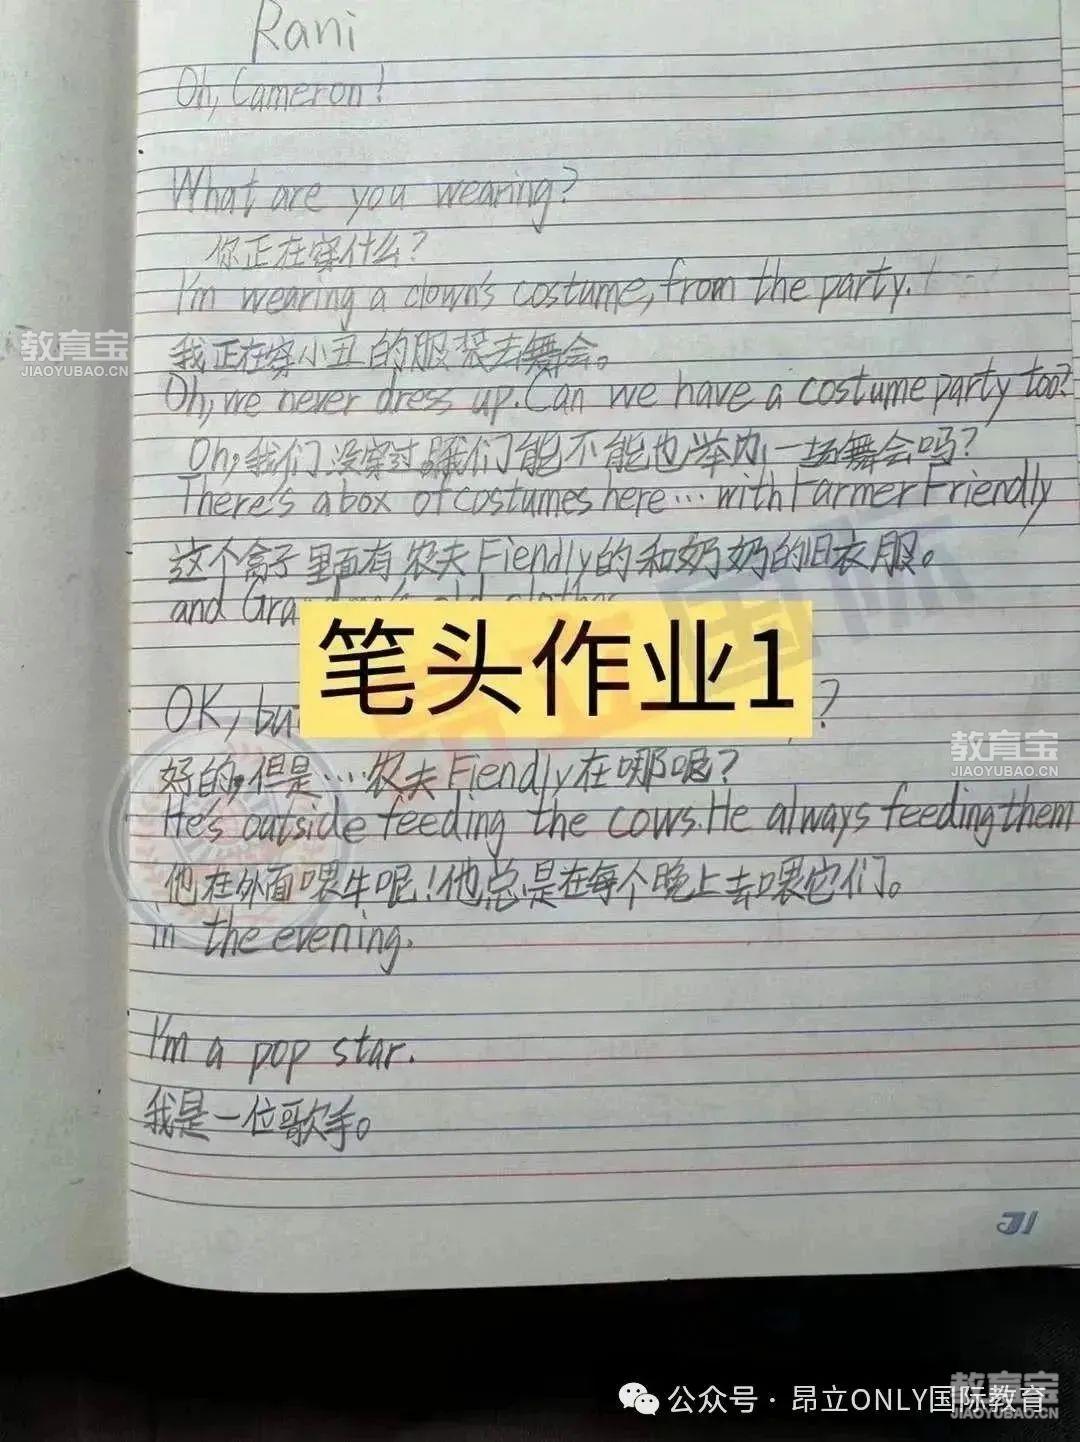 Rani
Oh, Cameron!
What are you wearing?
你正在穿什么?
I'm wearing a clown's costume, from the party.
教育宝
JIAOYUBAO.CN
我正在穿小丑的服装去舞会。
Oh, we never dress up. Can we have a costume party too?
Oh,我们没穿过,我们能不能也举办一场舞会吗?
There's a box of costumes here... with Farmer Friendly
这个盒子里面有农夫Fiendly的和奶奶的旧衣服。
and
笔头作业1
OK, bu ?
教育宝
JIAOYUBAO.CN
好的,但是…农夫Fiendly在哪呢?
He's outside feeding the cows. He always feeding them
他在外面喂牛呢!他总是在每个晚上去喂它们。
in the evening.
I'm a pop star.
我是一位歌手。
31
公众号·昂立ONLY国际教育
教育宝
JIAOYUBAO.CN